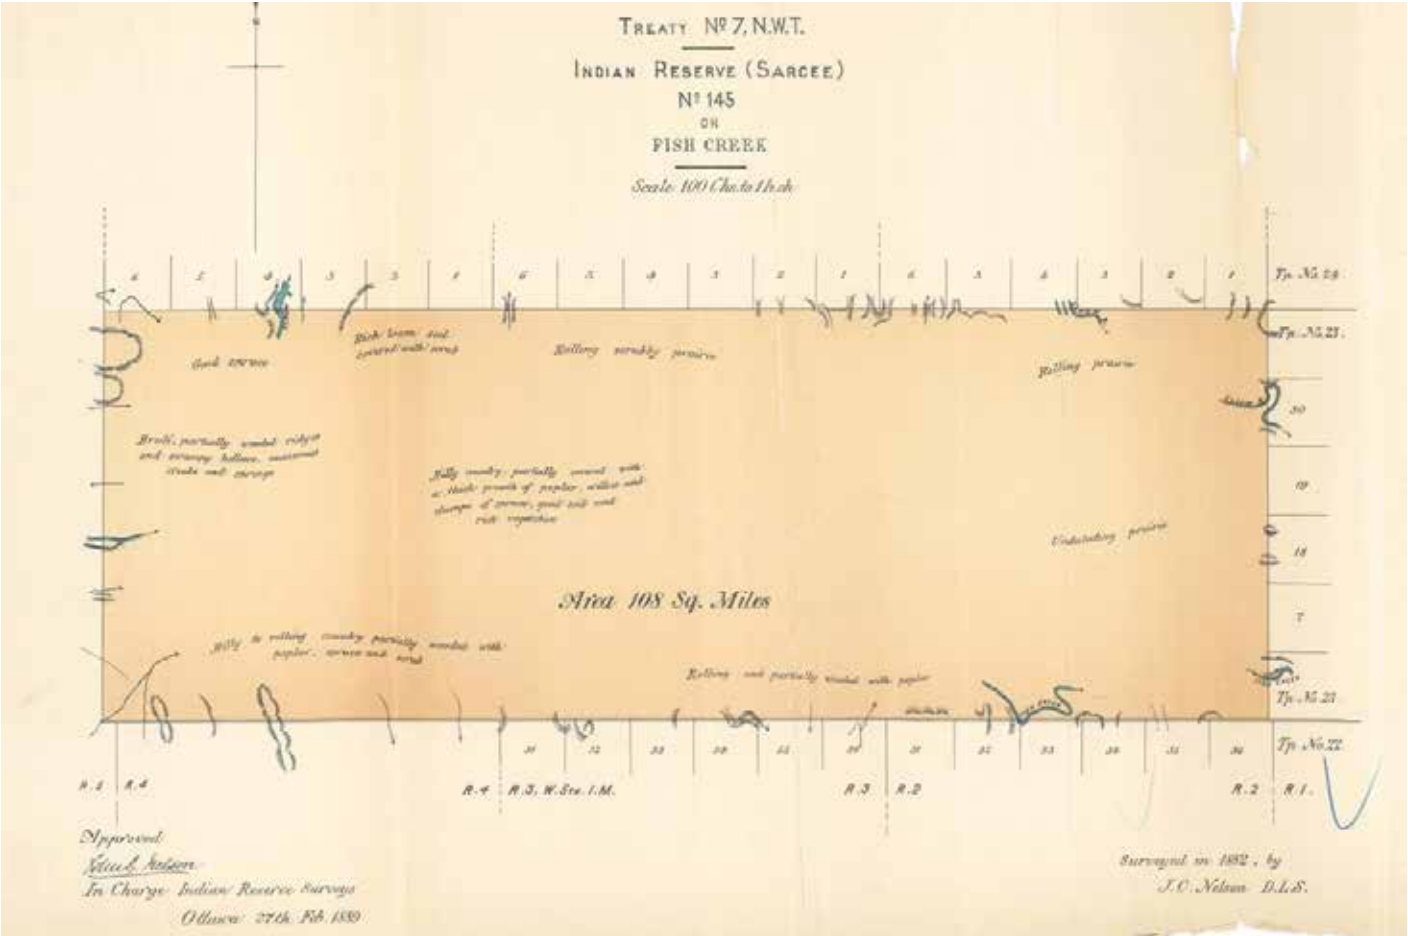 TREATY Nº 7, N.W.T.
INDIAN RESERVE (SARCEE)
Nº 145
ON
FISH CREEK
Scale 100 Chs. to 1 Inch
6 5 4 3 2 1 6 5 4 3 2 1 6 5 4 3 2 1 Tp. No. 24
Tp. No. 23.
Good spruce
Rich loam soil
covered with scrub
Rolling scrubby prairie
Rolling prairie
30
Brulé, partially wooded ridges
and swampy hollows, numerous
creeks and springs
Hilly country partially covered with
a thick growth of poplar, willow and
clumps of spruce, good soil and
rich vegetation
19
Undulating prairie
18
Area 108 Sq. Miles
7
Hilly to rolling country partially wooded with
poplar, spruce and scrub
Rolling and partially wooded with poplar
Tp. No. 23
31 32 33 34 35 36 31 32 33 34 35 36 Tp. No. 22
R.5 R.4 R.4 R.3, W. 5th. I.M. R.3 R.2 R.2 R.1.
Approved
John C. Nelson
In Charge Indian Reserve Surveys
Ottawa 27th. Feb. 1889
Surveyed in 1882, by
J.C. Nelson D.L.S.